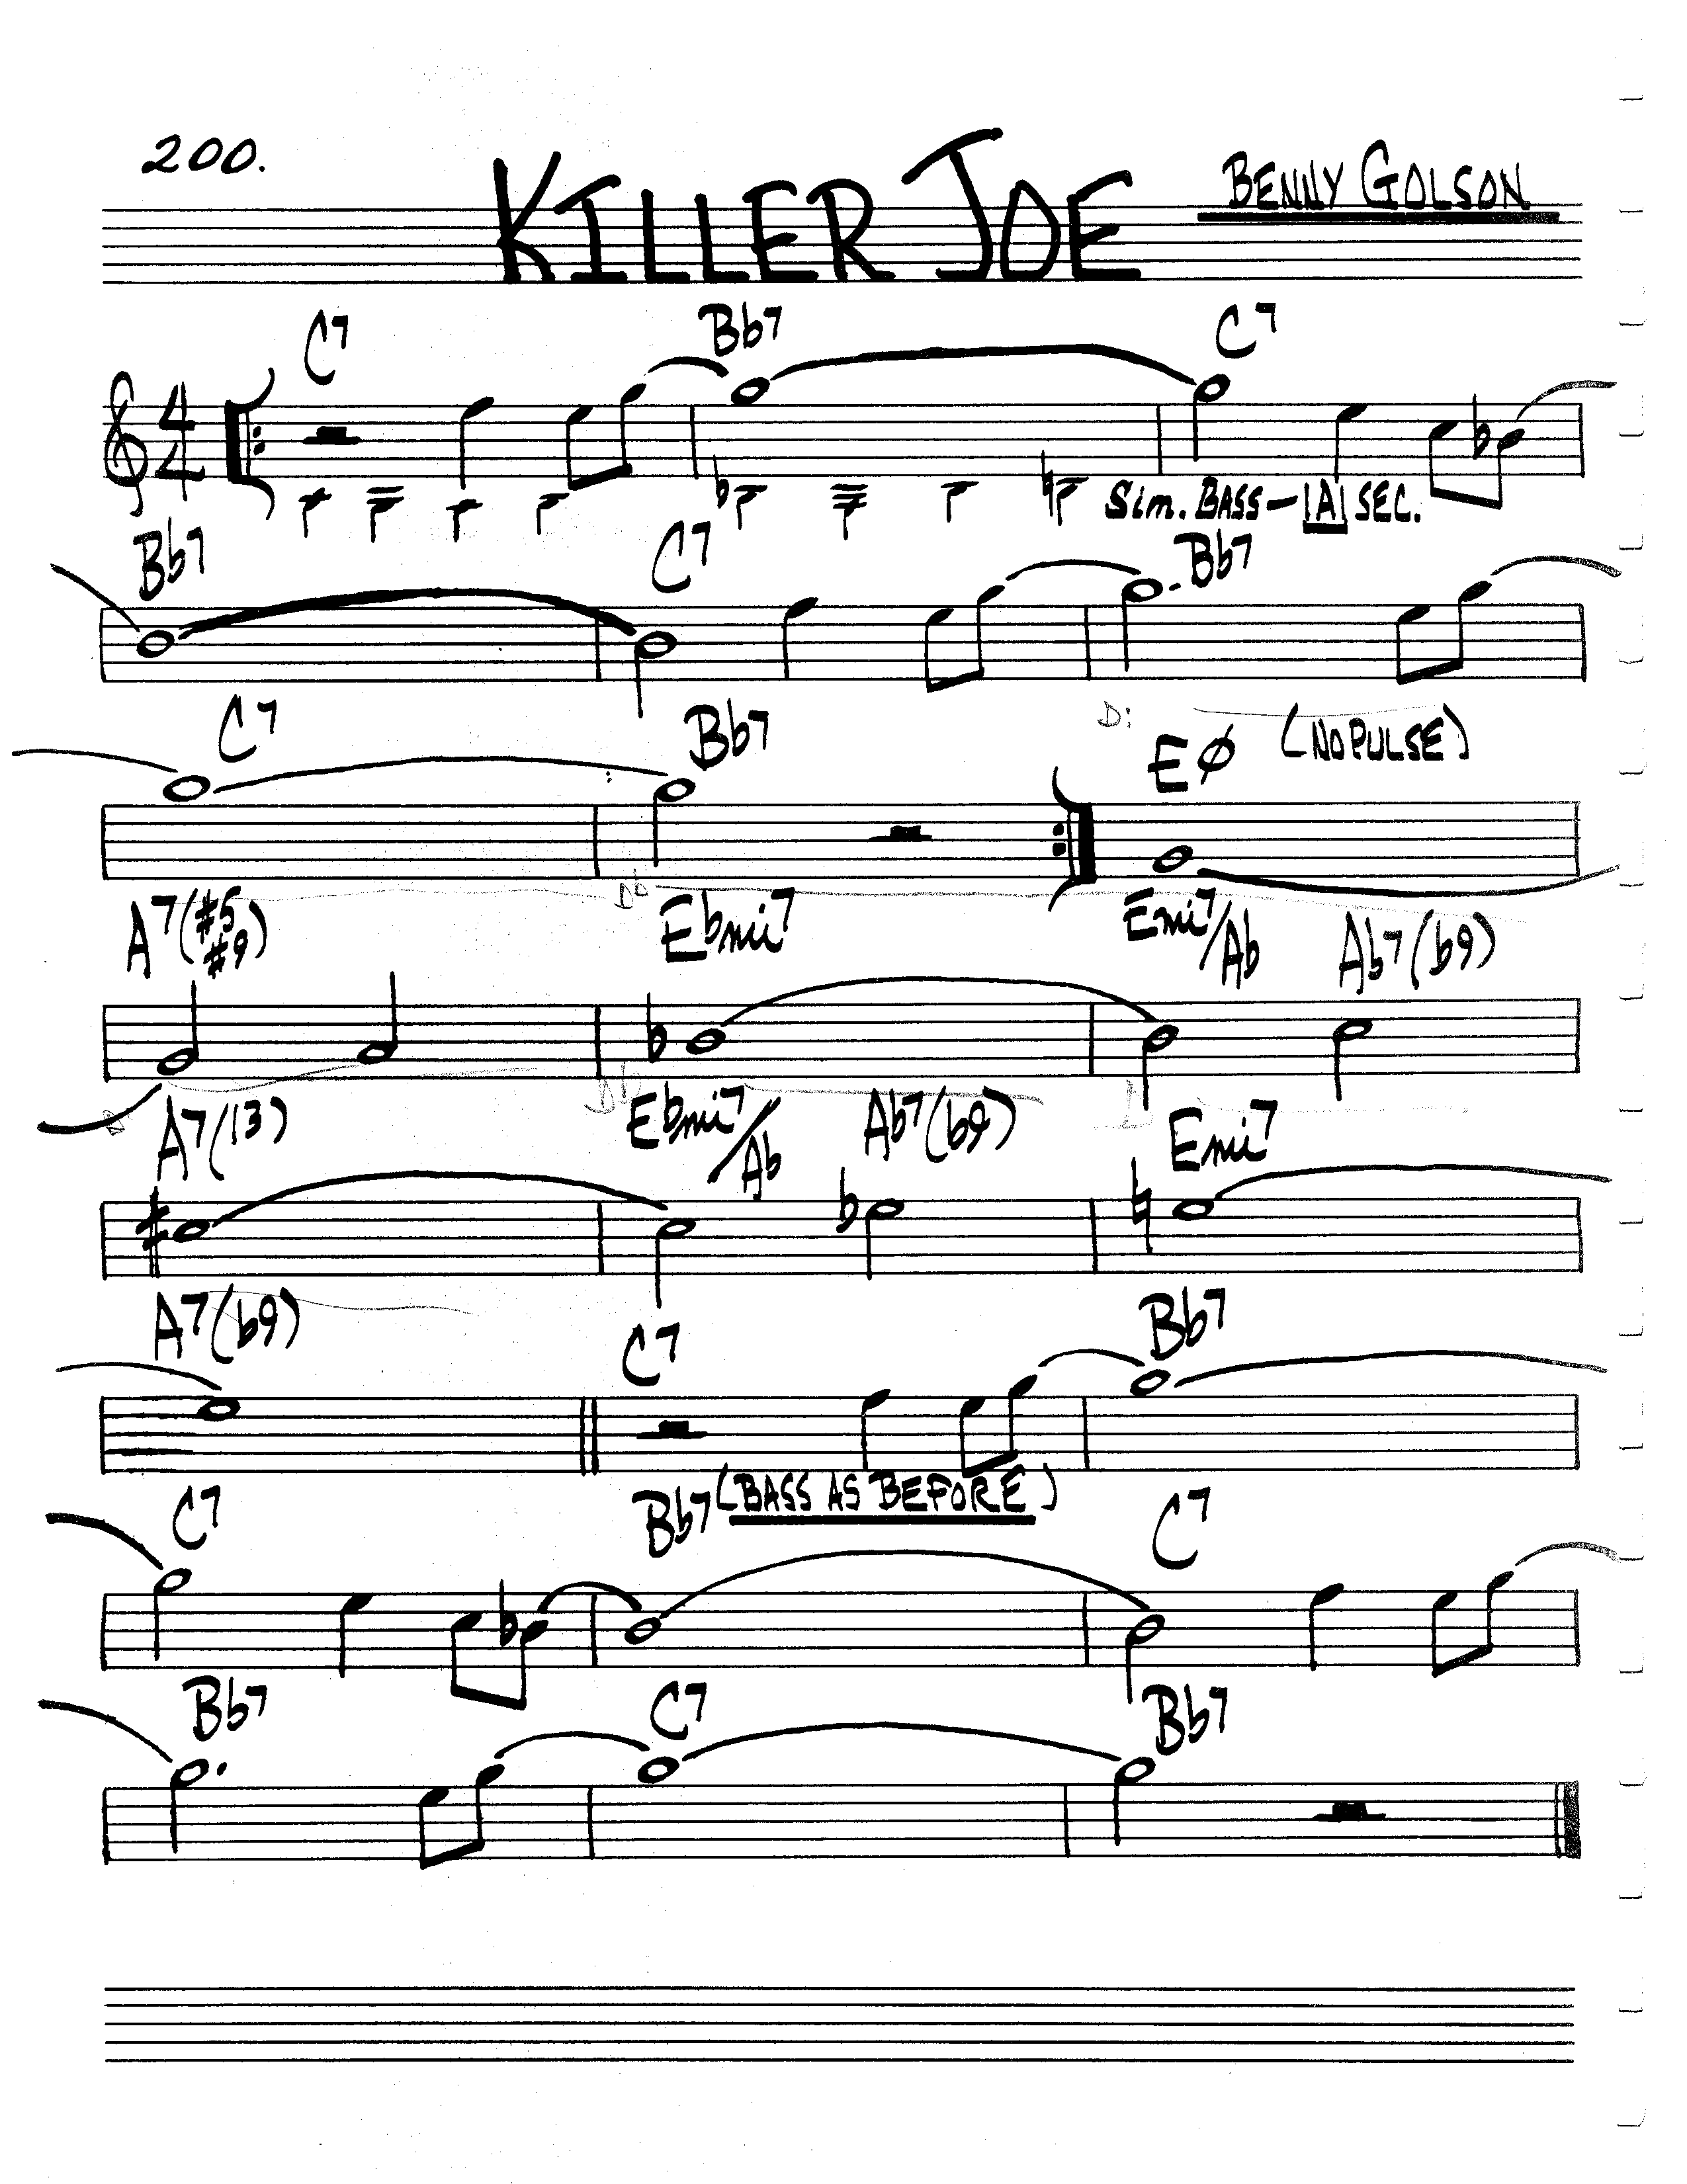 200.
KILLER JOE
BENNY GOLSON
C7 Bb7 C7
4
4
Sim. BASS - A SEC.
Bb7 C7 Bb7
C7 Bb7 D: EØ (NO PULSE)
A7(#5 #9) Db Ebmi7 Emi7/Ab Ab7(b9)
A7(13) Ebmi7/Ab Ab7(b9) Emi7
A7(b9) C7 Bb7
(BASS AS BEFORE)
C7 Bb7 C7
Bb7 C7 Bb7